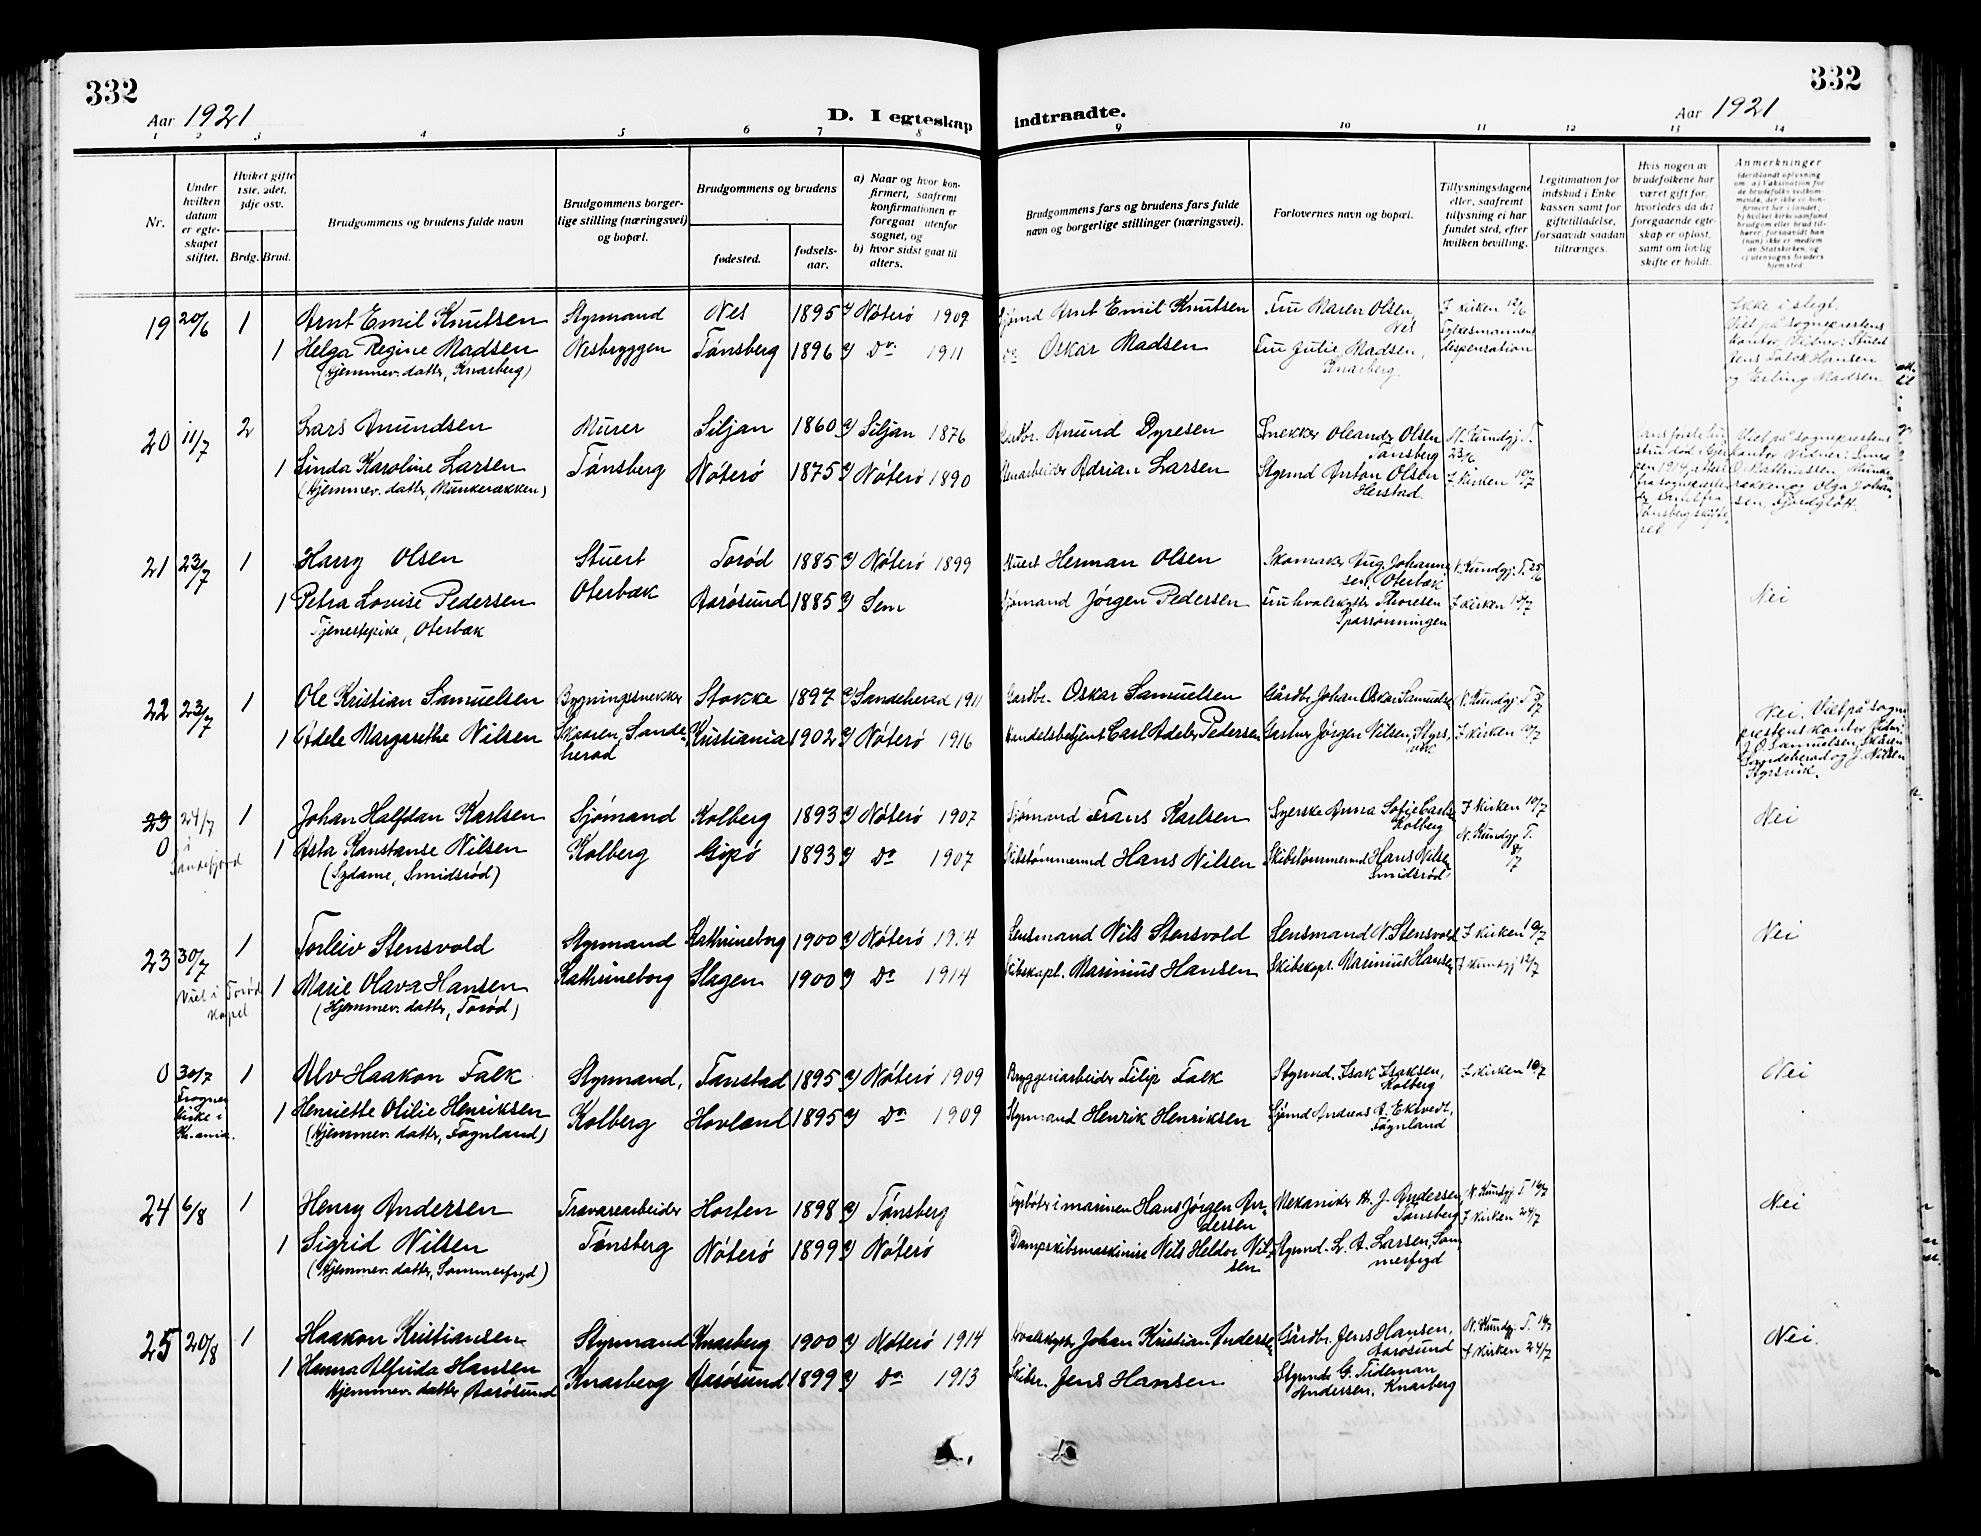 332
Aar 1921
D. I egteskap indtraadte.
332
Aar 1921
1 2 3 4 5 6 7 8 9 10 11 12 13 14
Nr.
Under hvilken datum er egteskapet stiftet.
Hviket gifte 1ste, 2det, 3dje osv.
Brdg. Brud.
Brudgommens og brudens fulde navn
Brudgommens borgerlige stilling (næringsvei) og bopæl.
Brudgommens og brudens
fødested.
fødselsaar.
a) Naar og hvor konfirmert, saafremt konfirmationen er foregaat utenfor sognet, og
b) hvor sidst gaat til alters.
Brudgommens fars og brudens fars fulde navn og borgerlige stillinger (næringsvei).
Forlovernes navn og bopæl.
Tillysningsdagene eller, saafremt tillysning ei har fundet sted, efter hvilken bevilling.
Legitimation for indskud i Enkekassen samt for giftetilladelse, forsaavidt saadan tiltrænges.
Hvis nogen av brudefolkene har været gift før, hvorledes da det foregaaende egteskap er opløst, samt om lovlig skifte er holdt.
Anmerkninger
19 20/6 1 Arnt Emil Knutsen Styrmand Nes 1895 a) Nøterø 1909 Sjømd Arnt Emil Knutsen Fru Maren Olsen, Nes I kirken 12/6
1 Helga Regine Madsen Nesbryggen Tønsberg 1896 a) Do 1911 Do Oskar Madsen Fru Julie Madsen, Knarberg. Fylkesmannens dispensation
(Hjemmev. datter, Knarberg)
Ikke i slegt. Viet på sogneprestens kontor. Vidner: Stuert Jens Falck Hansen og Erling Madsen
20 11/7 2 Lars Amundsen Murer Siljan 1860 a) Siljan 1876 Gardbr. Amund Dyresen Snekker Oleander Olsen Tønsberg N. Kundgj. T. 23/6
1 Linda Karoline Larsen Tønsberg Nøterø 1875 a) Nøterø 1890 Stenarbeider Adrian Larsen Styrmd Anton Olsen Herstad I kirken 10/7
(Hjemmev. datter, Munkerækken)
21 23/7 1 Harry Olsen Stuert Torød 1885 a) Nøterø 1899 Stuert Herman Olsen Skomaker Aug. Johannessen, Oterbæk N. Kundgj. T. 25/6
1 Petra Lovise Pedersen Oterbæk Aarøsund 1885 a) Sem Sjømand Jørgen Pedersen Fru hvalskytter Thoresen Sparrønningen I kirken 10/7 Nei
Tjenestepike, Oterbæk
22 23/7 1 Ole Kristian Samuelsen Bygningssnekker Stokke 1897 a) Sandeherad 1911 Gardbr. Oskar Samuelsen Gårdbr. Johan Oskar Samuelsen N. Kundgj. T. 5/7
1 Adele Margarethe Nilsen Skaaren, Sandeherad Kristiania 1902 a) Nøterø 1916 Handelsbetjent Carl Adeler Pedersen Gartner Jørgen Nilsen, Styrsvik I kirken 10/7
Nei. Viet på sogneprestens kontor. Vidner: J. O. Samuelsen, Skåren Sandeherad og J. Nilsen Styrsvik.
23 0 24/7 i Sandefjord 1 Johan Halfdan Karlsen Sjømand Kolberg 1893 a) Nøterø 1907 Sjømand Frans Karlsen Syerske Anna Sofie Carlsen Kolberg I kirken 10/7 Nei
1 Asta Konstanse Nilsen Kolberg Gipø 1893 a) Do 1907 Skibstømmermd Hans Nilsen Skibstømmermd Hans Nilsen Smidsrød N. Kundgj. T. 8/7
(Sydame, Smidsrød)
23 30/7 1 Torleiv Stensvold Styrmand Kathrineborg 1900 a) Nøterø 1914 Lensmand Nils Stensvold Lensmand N. Stensvold I kirken 10/7 Nei
Viet i Torød kapel 1 Marie Olava Hansen Kathrineborg Slagen 1900 a) Do 1914 Skibskapt. Marinius Hansen Skibskapt. Marinius Hansen I kundgj 12/7
(Hjemmev. datter, Torød)
0 30/7 Frogner kirke i Kr.ania. 1 Alv Haakon Falk Styrmand, Tanstad 1895 a) Nøterø 1909 Bryggeriarbeider Filip Falk Styrmd. Isak Isaksen, Kolberg I kirken 10/7 Nei
1 Henriette Otilie Henriksen Kolberg Hovland 1895 a) Do 1909 Styrmand Henrik Henriksen Sjømd Andreas A. Ektvedt, Føgnland
(Hjemmev. datter, Føgnland)
24 6/8 1 Henry Andersen Travarearbeider Horten 1898 a) Tønsberg Fyrbøter i marinen Hans Jørgen Andersen Mekaniker H. J. Andersen Tønsberg N. Kundgj. T. 14/7 Nei
1 Sigrid Nilsen Tønsberg Nøterø 1899 a) Nøterø Dampskibsmaskinist Nils Heldor Nilsen Styrmd. L. A. Larsen, Sommerfryd I kirken 24/7
(Hjemmev. datter, Sommerfryd)
25 20/8 1 Haakon Kristiansen Styrmand Knarberg 1900 a) Nøterø 1914 Hvalskytter Johan Kristian Andersen Gårdbr. Jens Hansen, Aarøsund N. Kundgj. T. 14/7 Nei.
1 Hanna Alfrida Hansen Knarberg Aarøsund 1899 a) Do 1913 Skibsr. Jens Hansen Styrmd G. Tideman Andersen, Knarberg I kirken 24/7
Hjemmev. datter Aarøsund